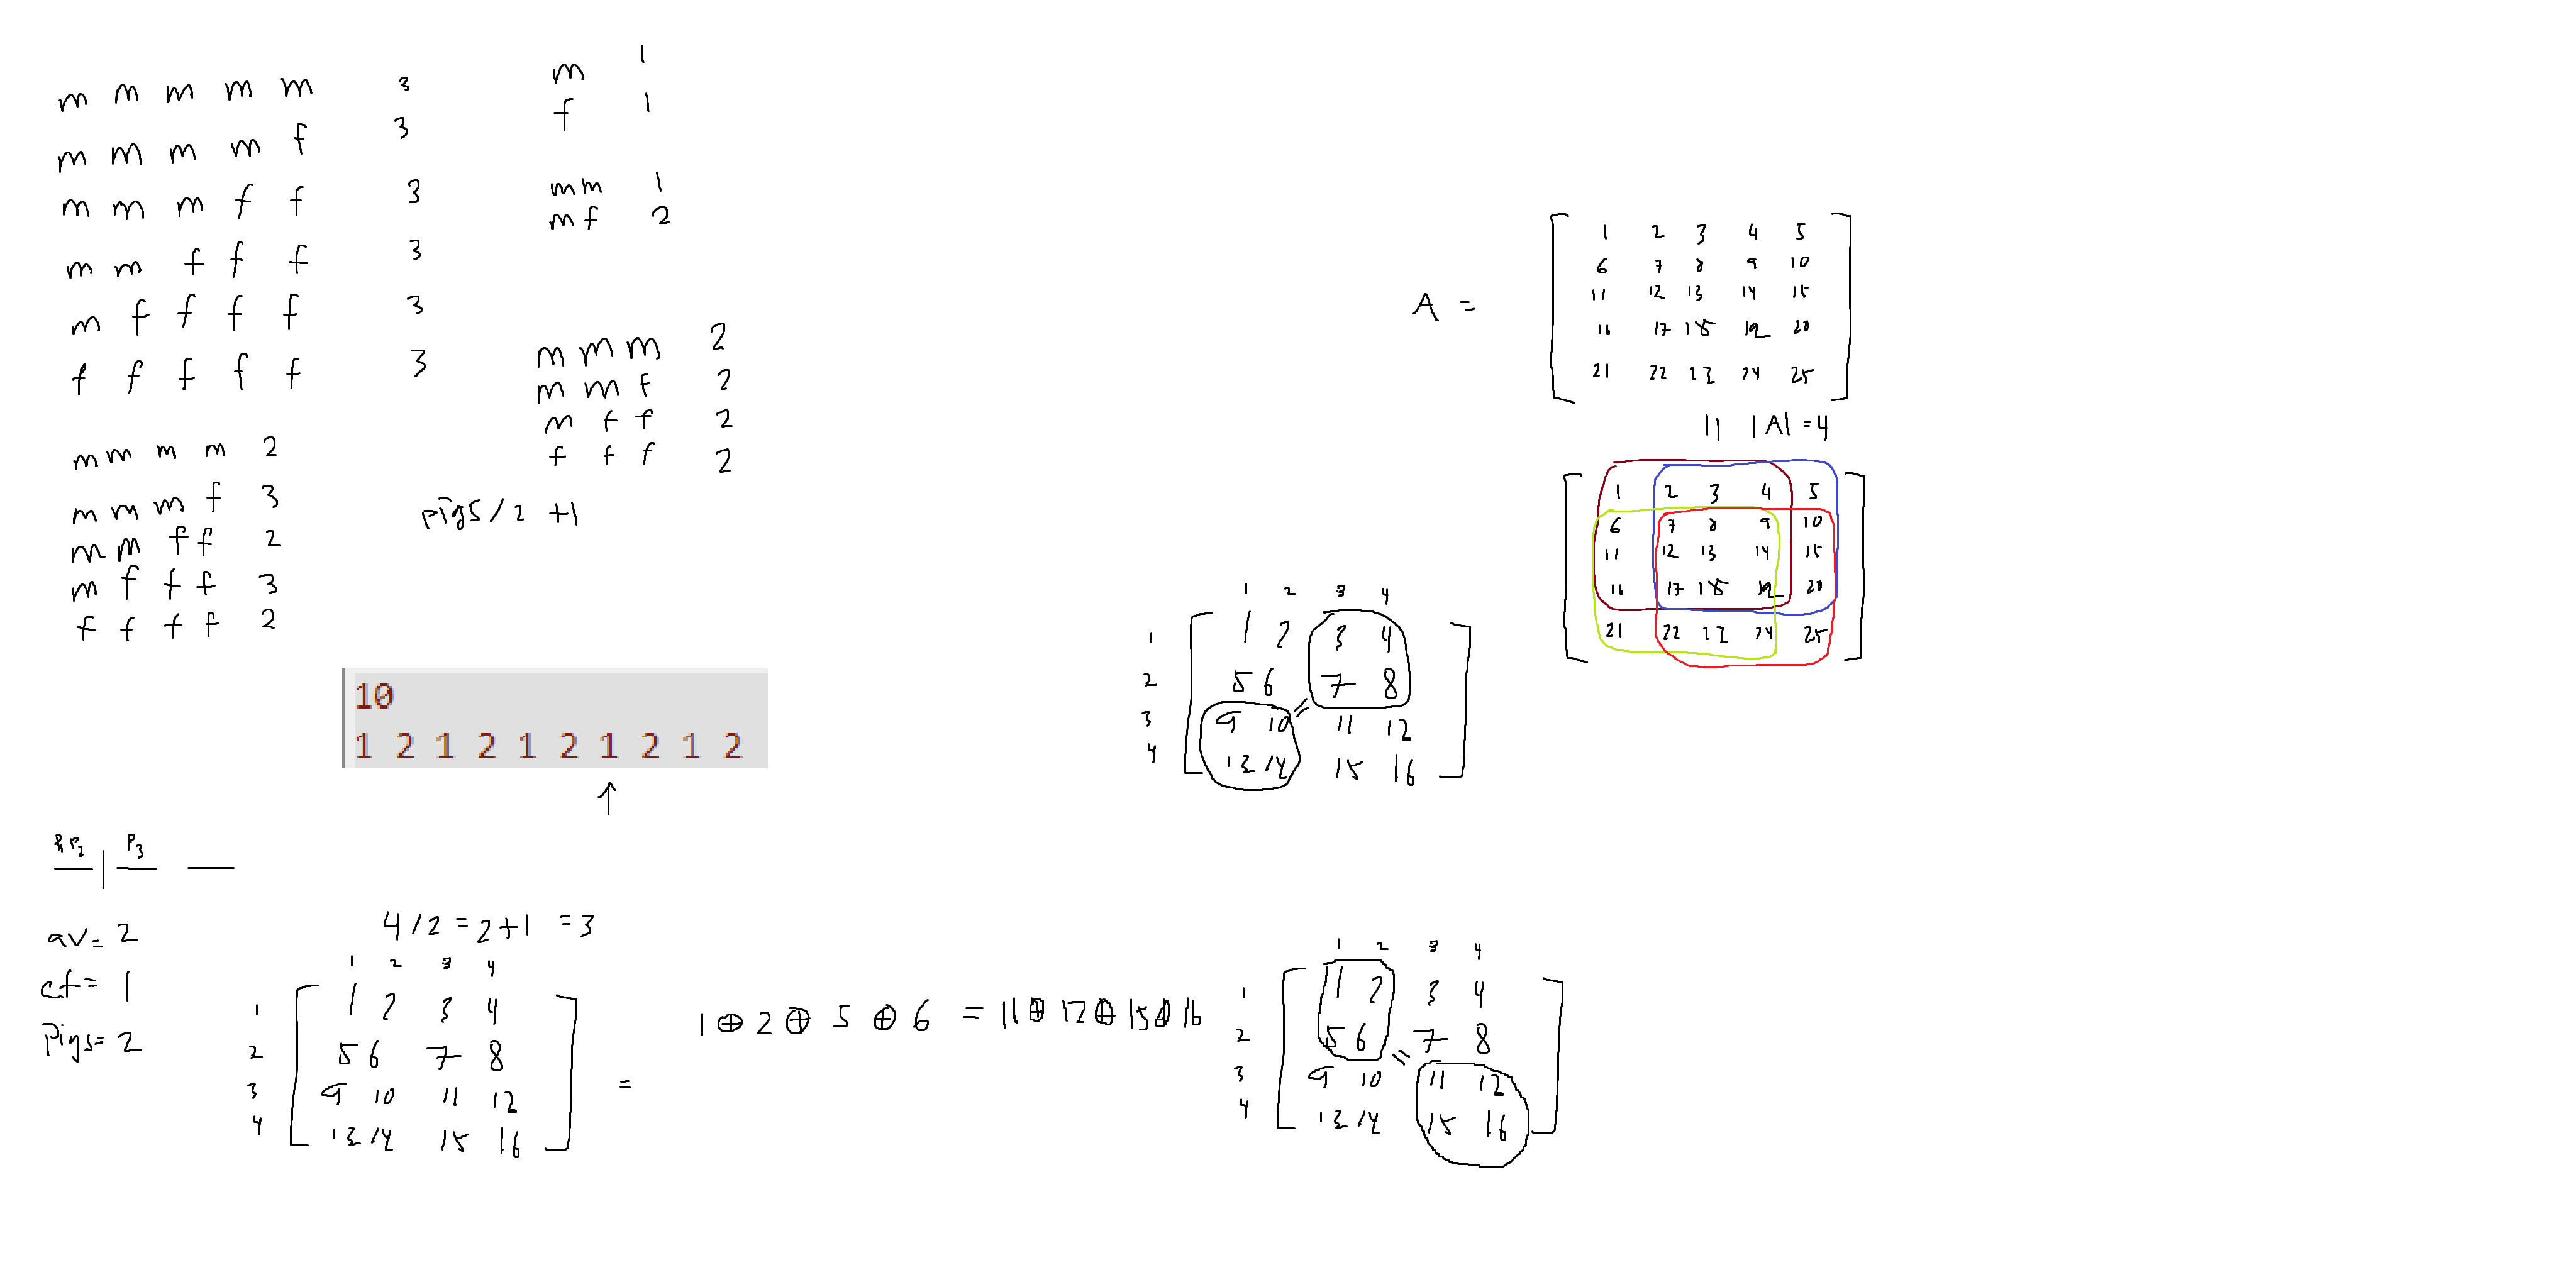 m m m m m 3
m m m m f 3
m m m f f 3
m m f f f 3
m f f f f 3
f f f f f 3
m 1
f 1
mm 1
mf 2
m m m 2
m m f 2
m f f 2
f f f 2
m m m m 2
m m m f 3
m m f f 2
m f f f 3
f f f f 2
pigs/2 +1
10
1 2 1 2 1 2 1 2 1 2
↑
P₁ P₂ | P₃
av= 2
cf= 1
Pigs= 2
4/2 = 2+1 = 3
1 2 3 4
1 1 2 3 4
2 5 6 7 8
3 9 10 11 12
4 13 14 15 16
=
1 ⊕ 2 ⊕ 5 ⊕ 6 = 11 ⊕ 12 ⊕ 15 ⊕ 16
1 2 3 4
1 1 2 3 4
2 5 6 7 8
3 9 10 = 11 12
4 13 14 15 16
1 2 3 4
1 1 2 3 4
2 5 6 = 7 8
3 9 10 11 12
4 13 14 15 16
A =
1 2 3 4 5
6 7 8 9 10
11 12 13 14 15
16 17 18 19 20
21 22 23 24 25
|| |A| = 4
1 2 3 4 5
6 7 8 9 10
11 12 13 14 15
16 17 18 19 20
21 22 23 24 25